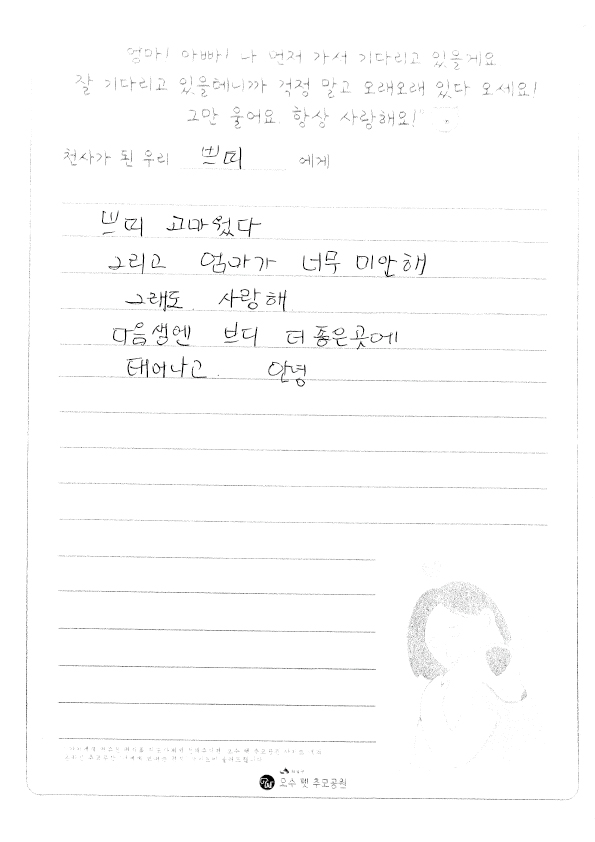 엄마! 아빠! 나 먼저 가서 기다리고 있을게요
잘 기다리고 있을테니까 걱정 말고 오래오래 있다 오세요!
그만 울어요. 항상 사랑해요!
천사가 된 우리 쁘띠 에게
쁘띠 고마웠다
그리고 엄마가 너무 미안해
그래도 사랑해
다음생엔 브디 더 좋은곳에
태어나고. 안녕
오수 펫 추모공원